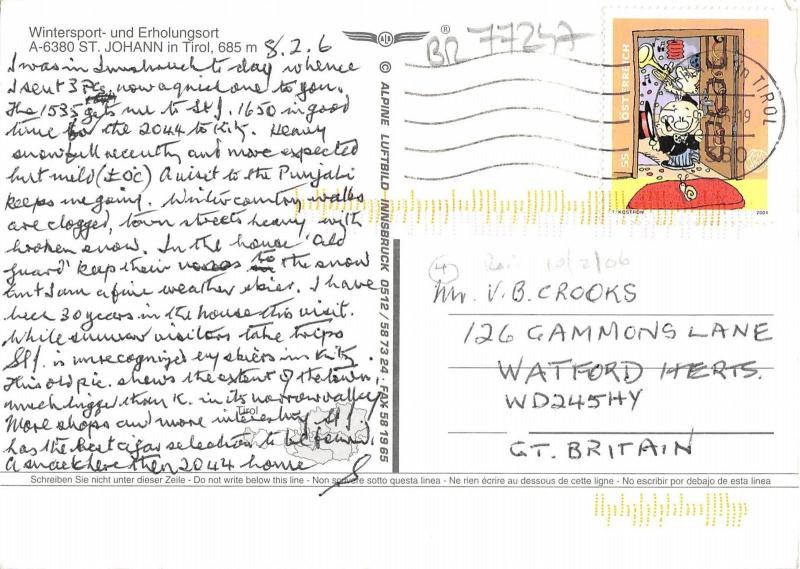 Wintersport- und Erholungsort
A-6380 ST. JOHANN in Tirol, 685 m 8.2.6
I was in Innsbruck to day whence
I sent 3 PCs, now a quick one to you.
The 1535 gets me to St J. 1650 in good
time for the 2044 to Kitz. Heavy
snowfall recently and more expected
but mild (±0C) A visit to the Punjabi
keeps me going. Winter country walks
are clogged, town streets heavy with
broken snow. In the house 'old
guard' keep their noses to the snow
but I am a fine weather skier. I have
been 30 years in the house this visit.
While summer visitors take trips
St J. is unrecognized by skiers in Kitz.
This old pic. shows the extent of the town,
much bigger than K. in its narrow valley
More shops and more interesting St J
has the best cigar selection to be found.
A snack here then 2044 home
Tirol
Schreiben Sie nicht unter dieser Zeile - Do not write below this line - Non scrivere sotto questa linea - Ne rien écrire au dessous de cette ligne - No escribir por debajo de esta linea
ALB
®
© ALPINE LUFTBILD - INNSBRUCK 0512 / 58 73 24 · FAX 58 19 85
BR 77247
ÖSTERREICH
55
T. KOSTRON
2004
TIROL
(4) Rec. 10/2/06
Mr. V.B. CROOKS
126 GAMMONS LANE
WATFORD HERTS.
WD245HY
GT. BRITAIN